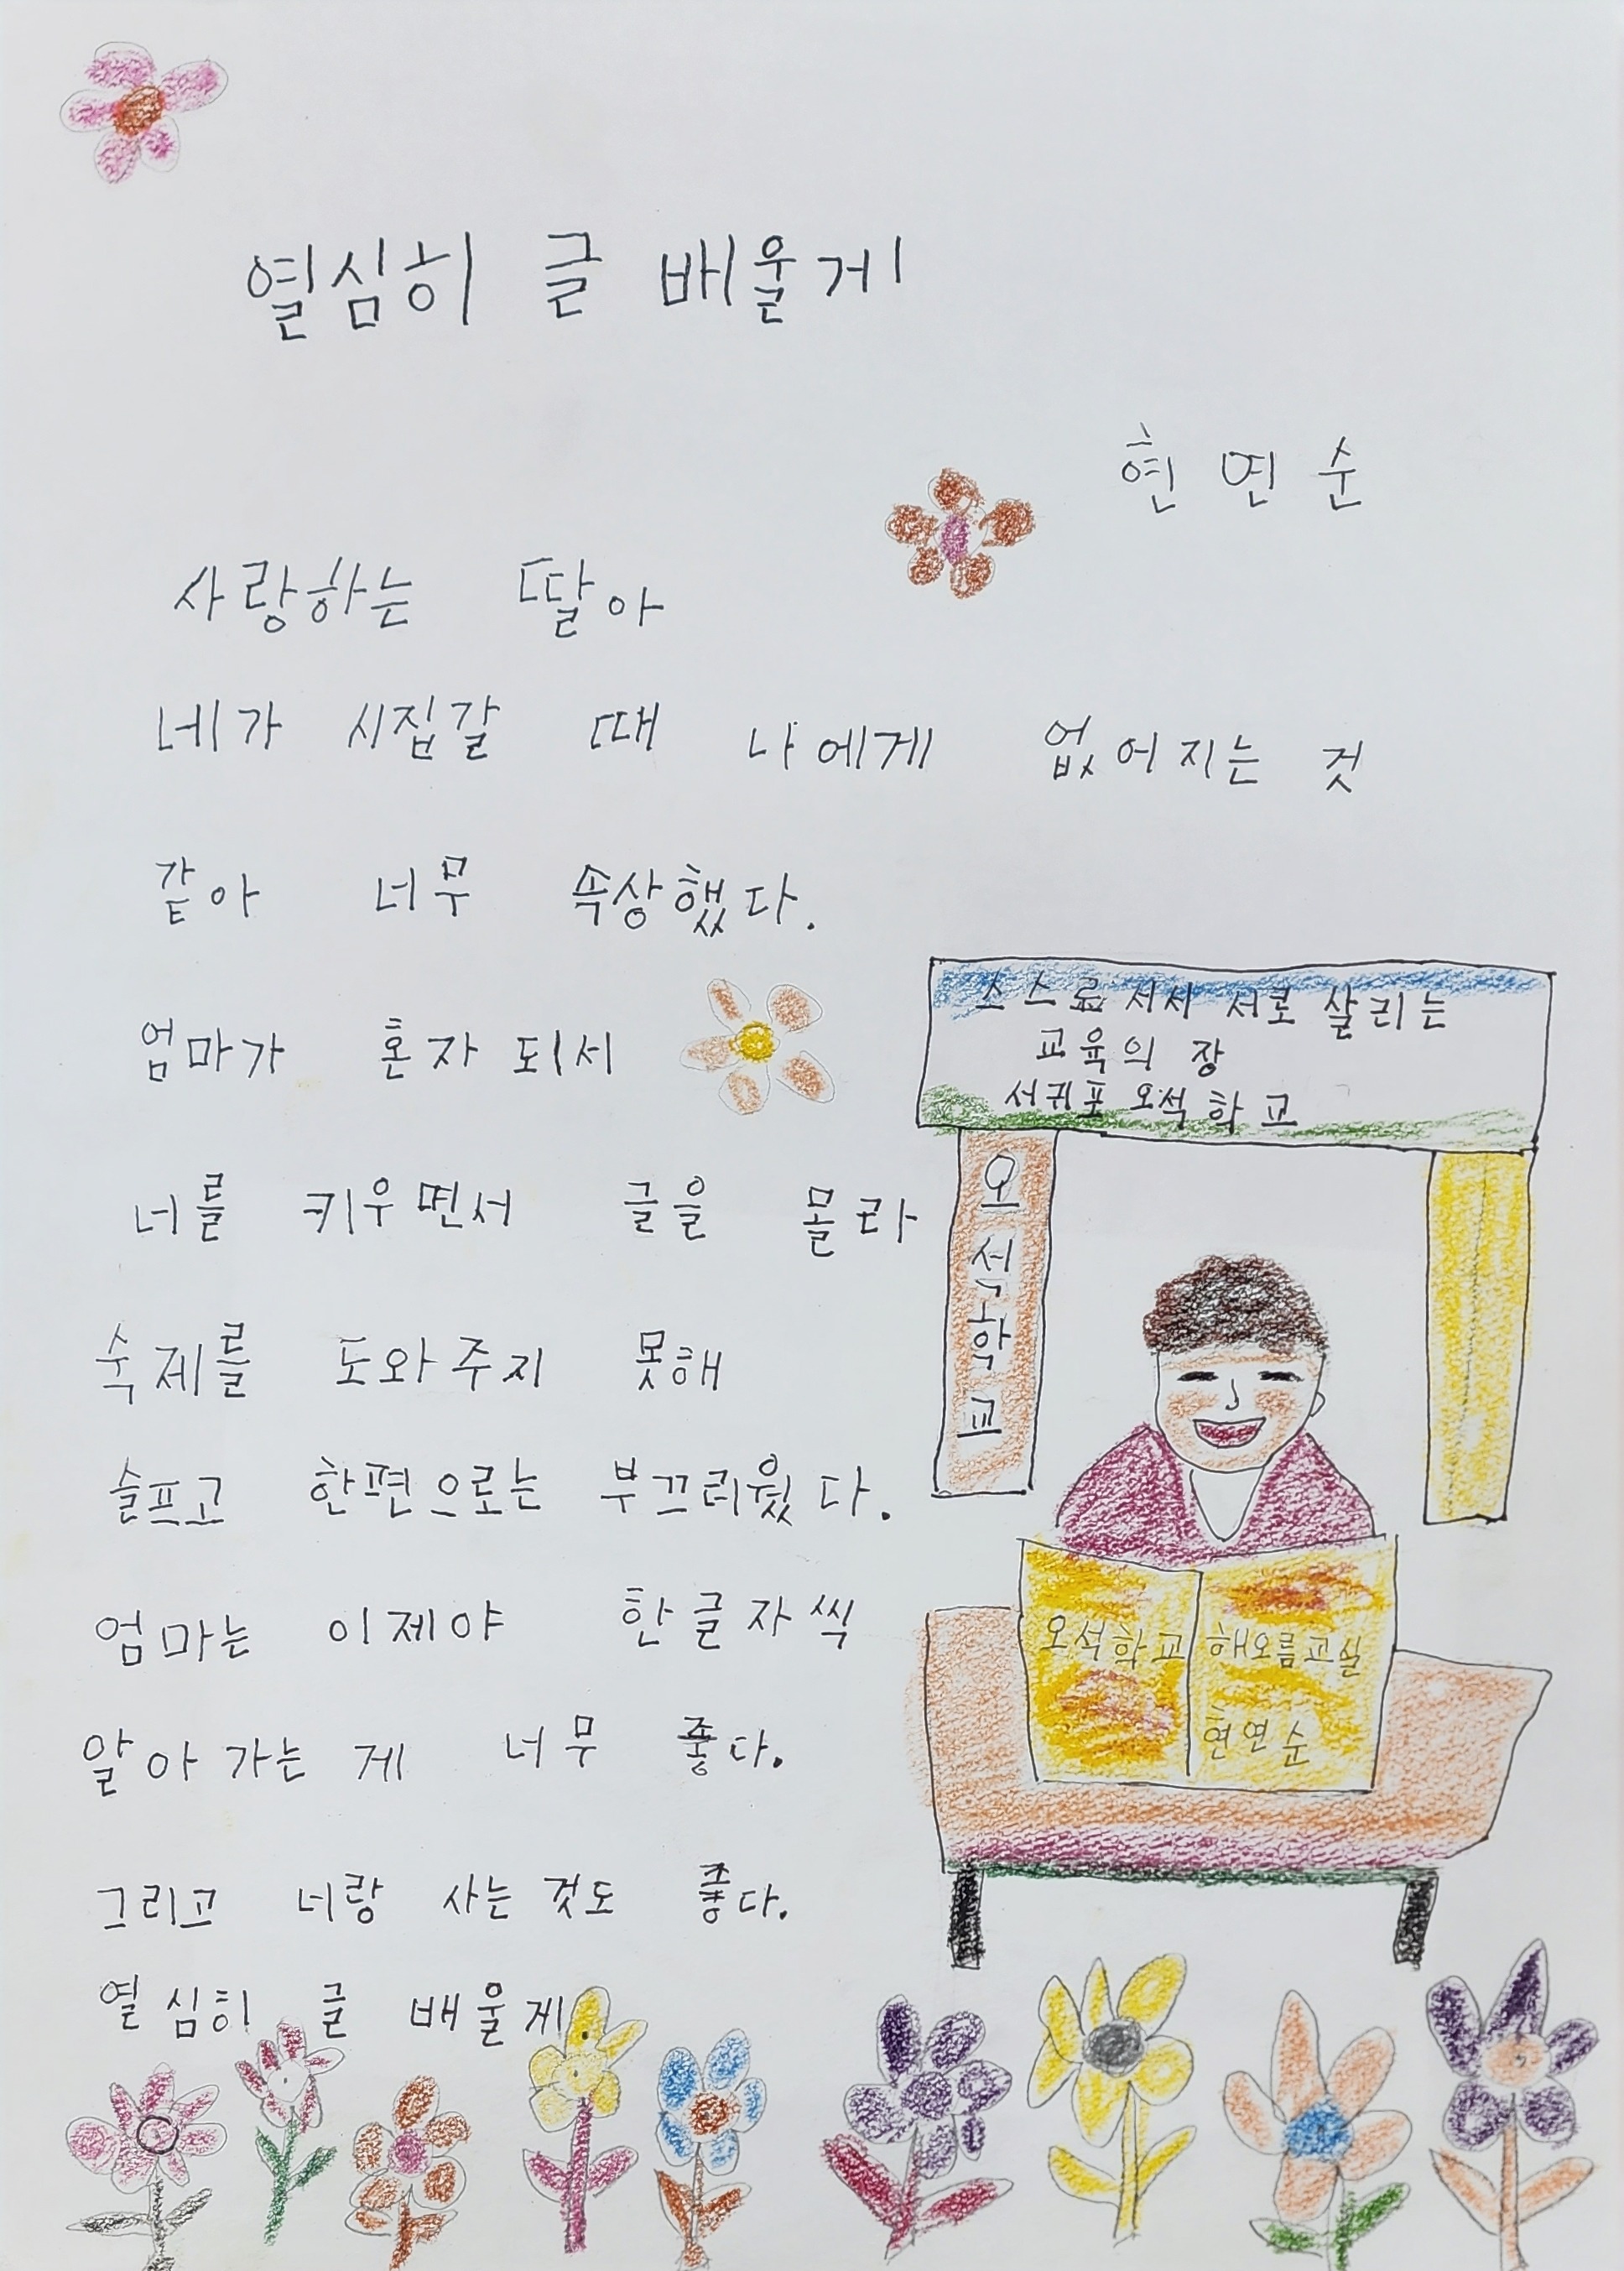 열심히 글 배울게
현연순
사랑하는 딸아
네가 시집갈 때 나에게 없어지는 것
같아 너무 속상했다.
엄마가 혼자 되서
너를 키우면서 글을 몰라
숙제를 도와주지 못해
슬프고 한편으로는 부끄러웠다.
엄마는 이제야 한글자씩
알아가는 게 너무 좋다.
그리고 너랑 사는 것도 좋다.
열심히 글 배울게
스스로 서서 서로 살리는
교육의 장
서귀포 오석학교
오석학교
오석학교 해오름교실
현연순